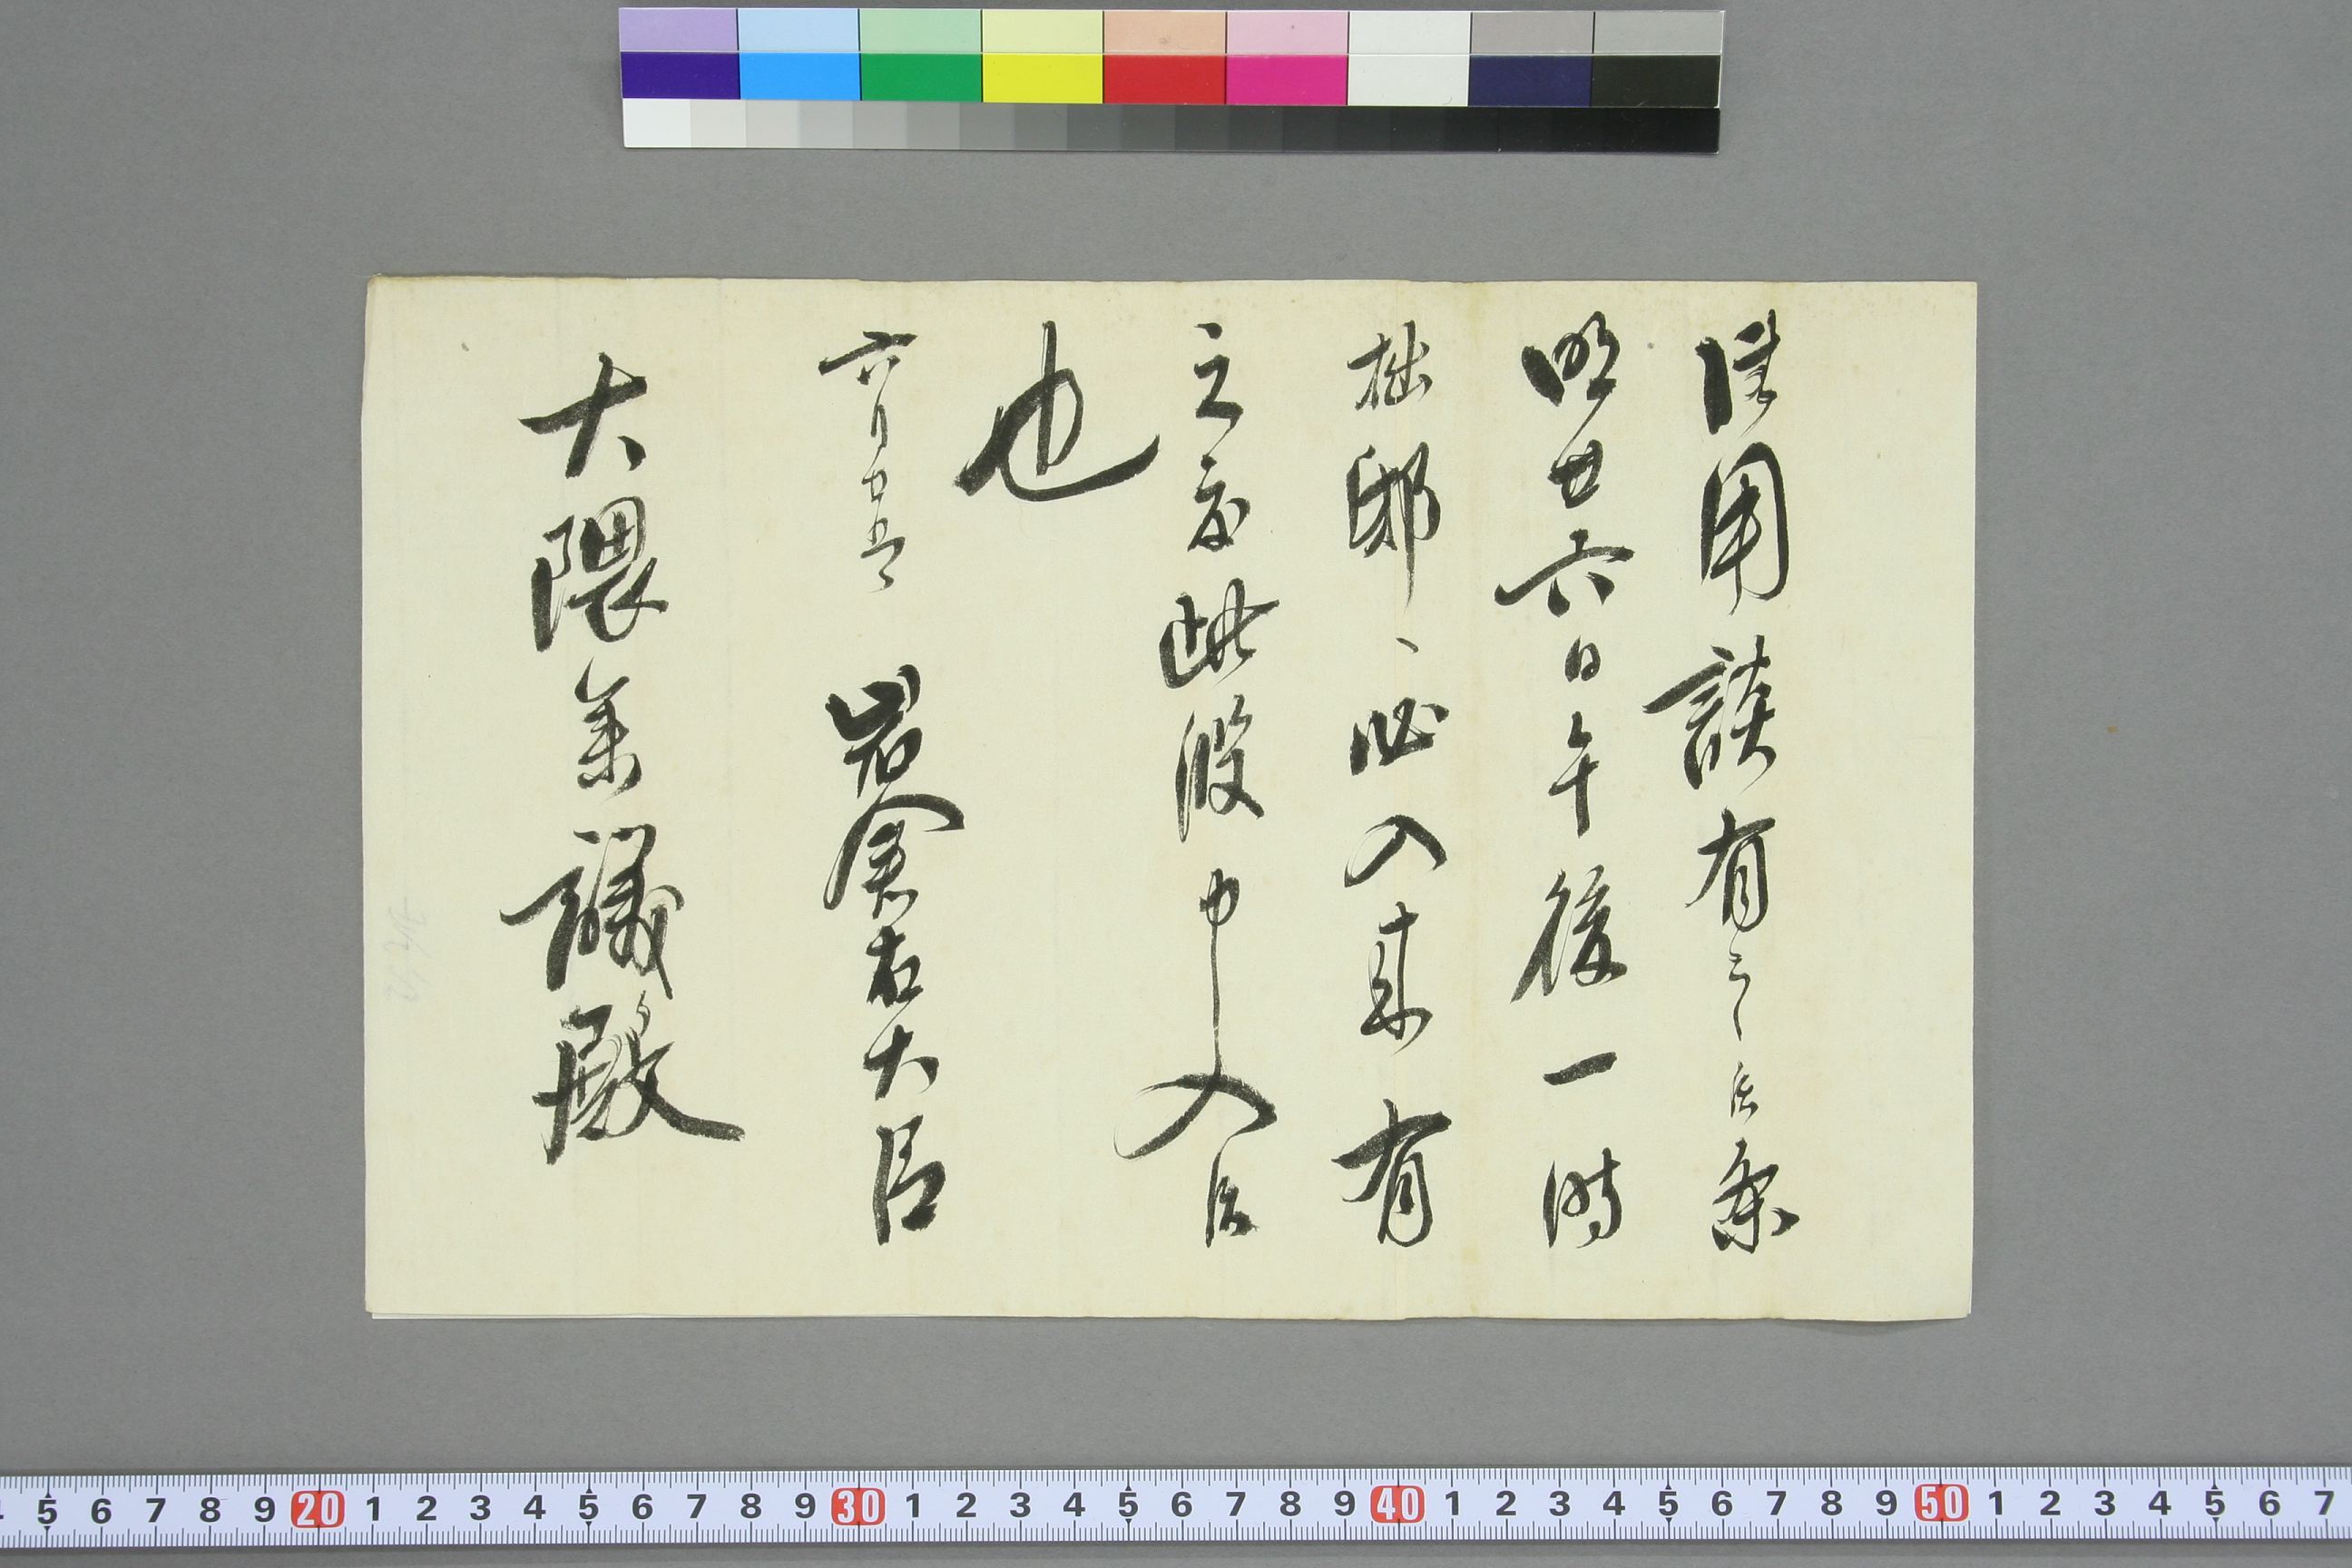 御用談有之候条
明廿六日午後一時
拙邸へ必入来有
之度此段申入候
也
六月廿五日 岩倉右大臣
大隈参議殿
5 6 7 8 9 20 1 2 3 4 5 6 7 8 9 30 1 2 3 4 5 6 7 8 9 40 1 2 3 4 5 6 7 8 9 50 1 2 3 4 5 6 7